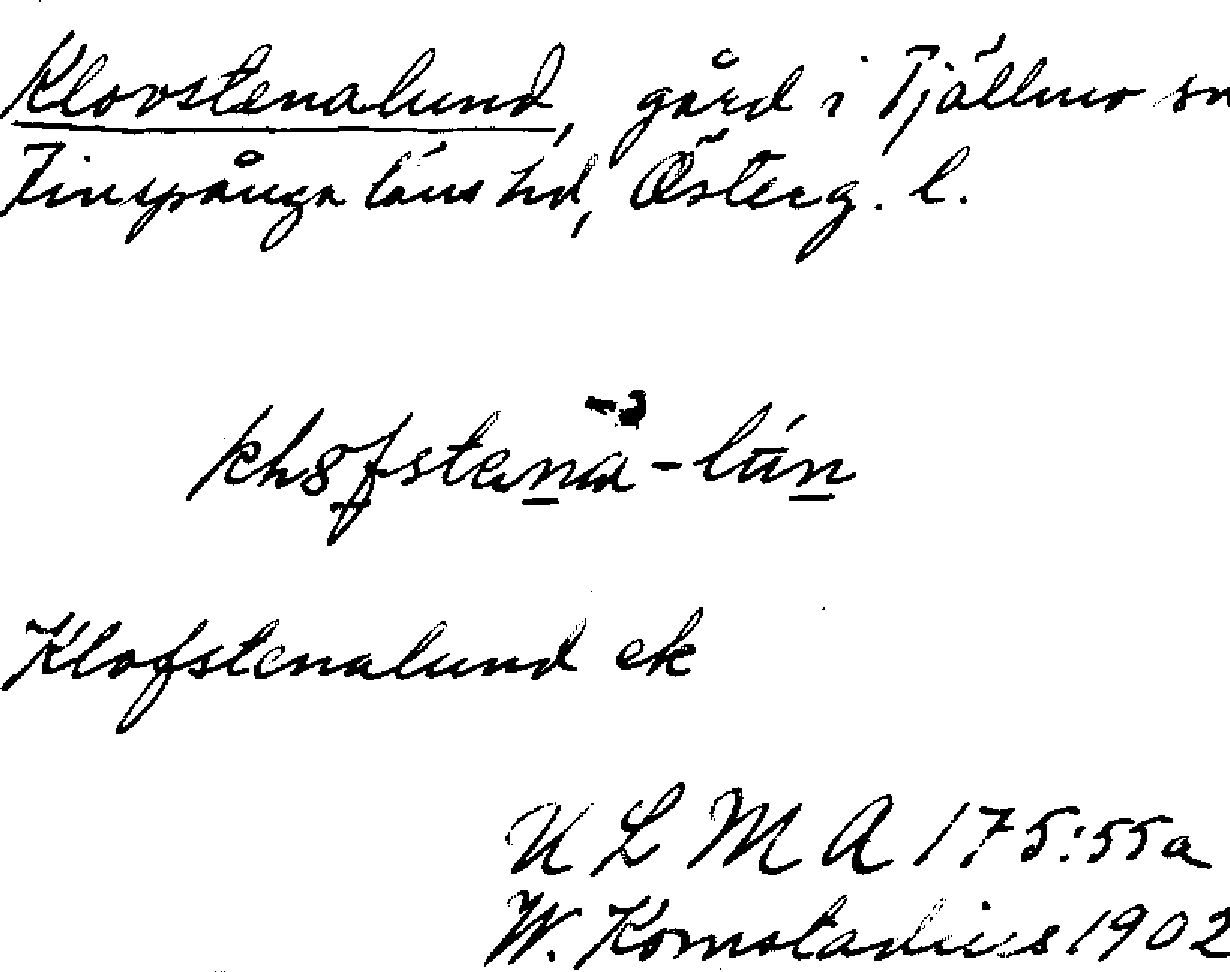 Klovstenalund, gård i Tjällmo sn
Finspånga läns hd, Österg. l.
Klofstenalund ek
ULMA 175:55a
W. Komstadius 1902